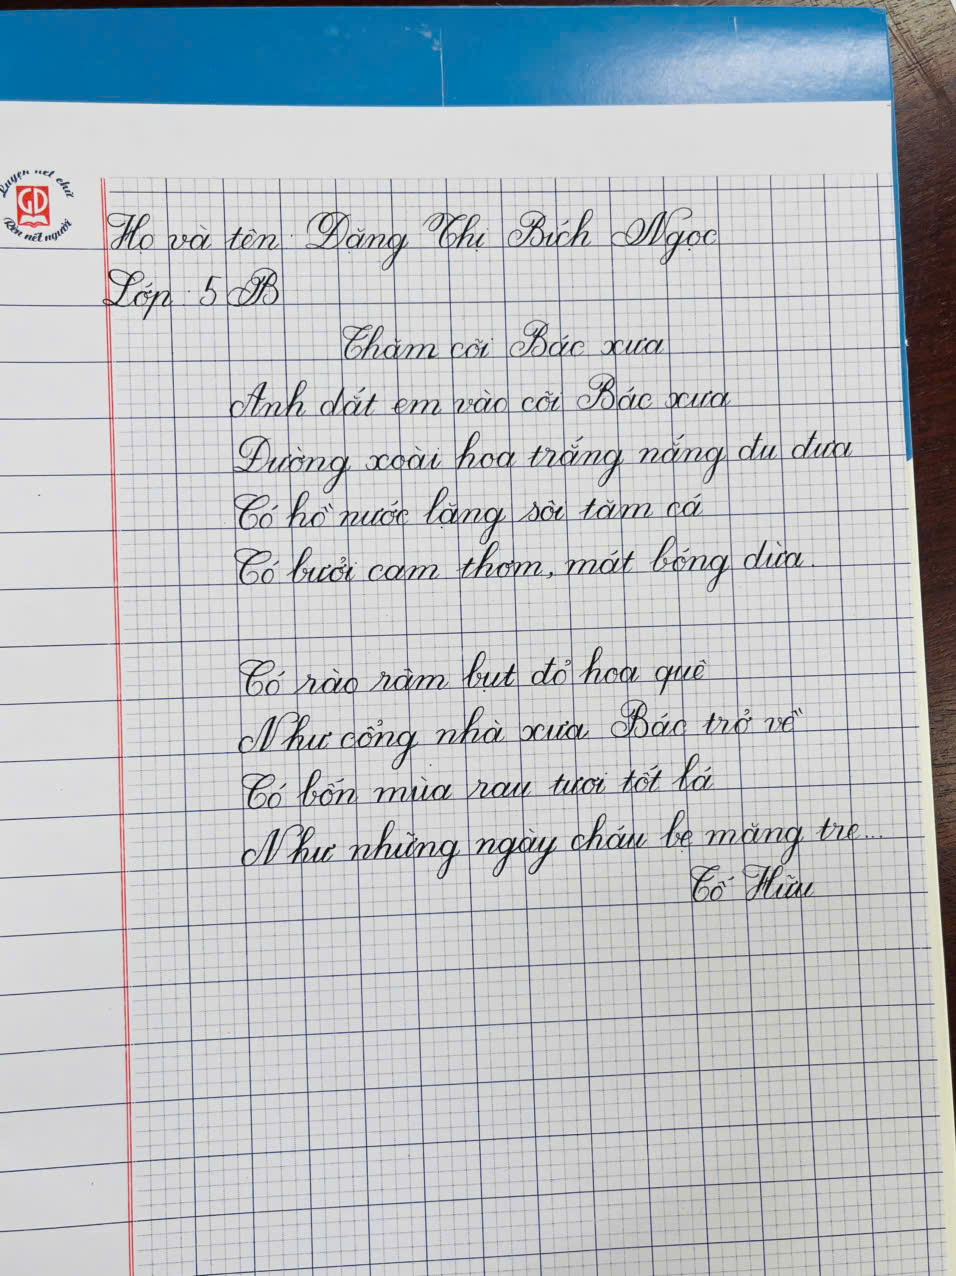 Luyện nét chữ
GD
Rèn nết người
Họ và tên: Đặng Thị Bích Ngọc
Lớp: 5B
Thăm cõi Bác xưa
Anh dắt em vào cõi Bác xưa
Đường xoài hoa trắng nắng đu đưa
Có hồ nước lặng sôi tăm cá
Có bưởi cam thơm, mát bóng dừa.
Có rào râm bụt đỏ hoa quê
Như cổng nhà xưa Bác trở về
Có bốn mùa rau tươi tốt lá
Như những ngày cháo bẹ măng tre...
Tố Hữu